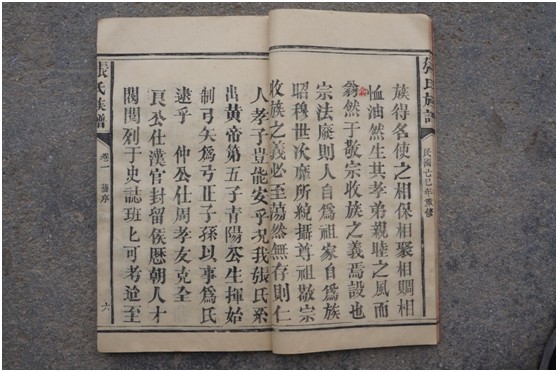 張氏族譜
民國己巳年重修
族得名使之相保相聚相賙相
恤油然生其孝弟親睦之風而
翕然于敬宗收族之義焉設也
宗法廢則人自爲祖家自爲族
昭穆世次靡所統攝尊祖敬宗
收族之義必至蕩然無存則仁
人孝子豈能安乎况我張氏系
出黄帝第五子青陽公生揮始
制弓矢爲弓正子孫以事爲氏
逮乎 仲公仕周孝友克全
良公仕漢官封留侯歷朝人才
閥閱列于史誌班匕可考迨至
張氏族譜
卷一 舊序
六